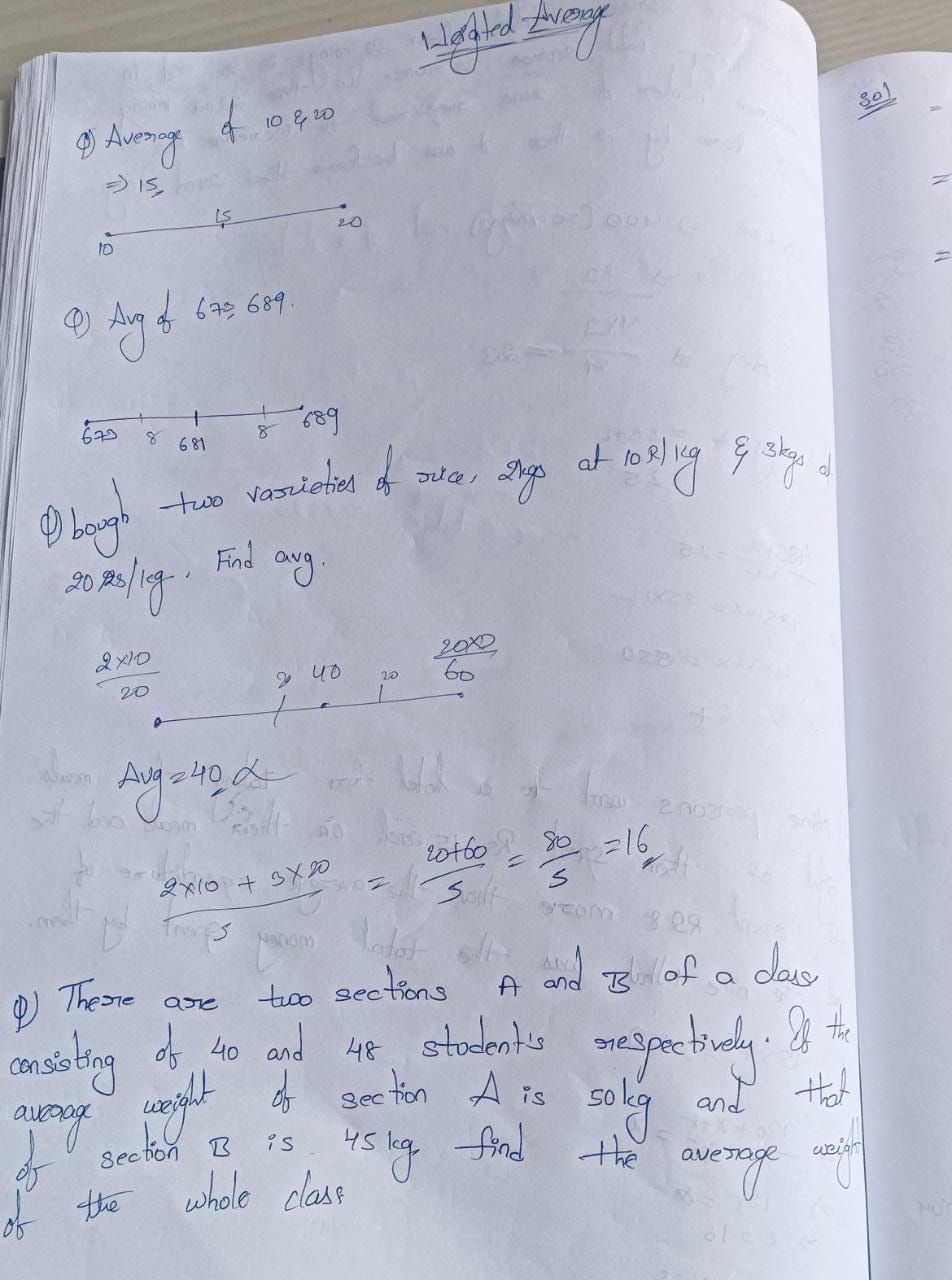 Weighted Average
Q) Average of 10 & 20
=> 15
10 15 20
Q) Avg of 673, 689.
673 8 681 8 689
Q) bough two varieties of rice, 2kgs at 10 R/kg & 3kgs
20 Rs/kg. Find avg.
2×10
20 40 20
60
Avg = 40
2×10 + 3×20 / 5 = 20+60 / 5 = 80 / 5 = 16
Q) There are two sections A and B of a class
consisting of 40 and 48 student's respectively. If the
average weight of section A is 50kg and that
of section B is 45kg find the average weigh
of the whole class
301
=
=
=